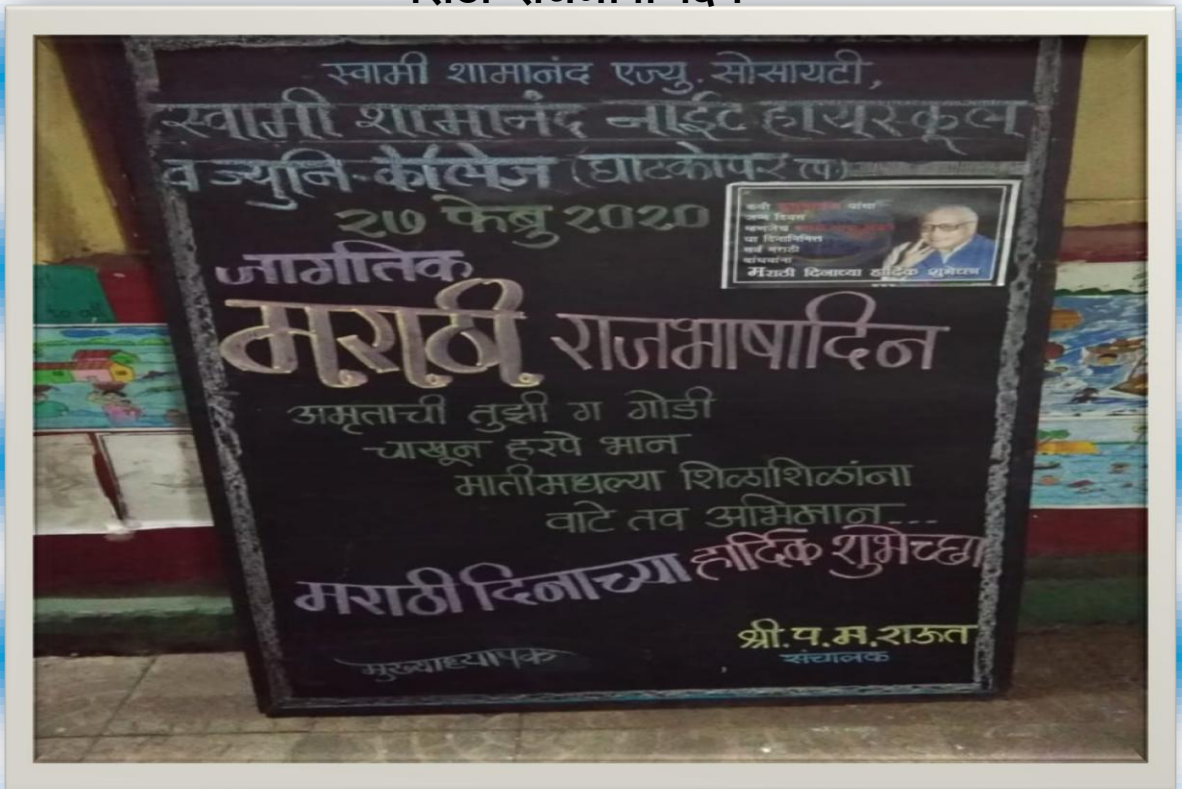 स्वामी शामानंद एज्यु. सोसायटी,
स्वामी शामानंद नाईट हायस्कूल
व ज्युनि-कॉलेज (घाटकोपर (प.)
२७ फेब्रु २०२०
कवी यांचा
जन्म दिवस
म्हणजेच
या दिनानिमित्त
सर्व मराठी
बांधवांना
मराठी दिनाच्या हार्दिक शुभेच्छा
जागतिक
मराठी राजभाषादिन
अमृताची तुझी ग गोडी
चाखून हरपे भान
मातीमधल्या शिळाशिळांना
वाटे तव अभिमान---
मराठी दिनाच्या हार्दिक शुभेच्छा
श्री.प.म.राऊत
मुख्याध्यापक संचालक